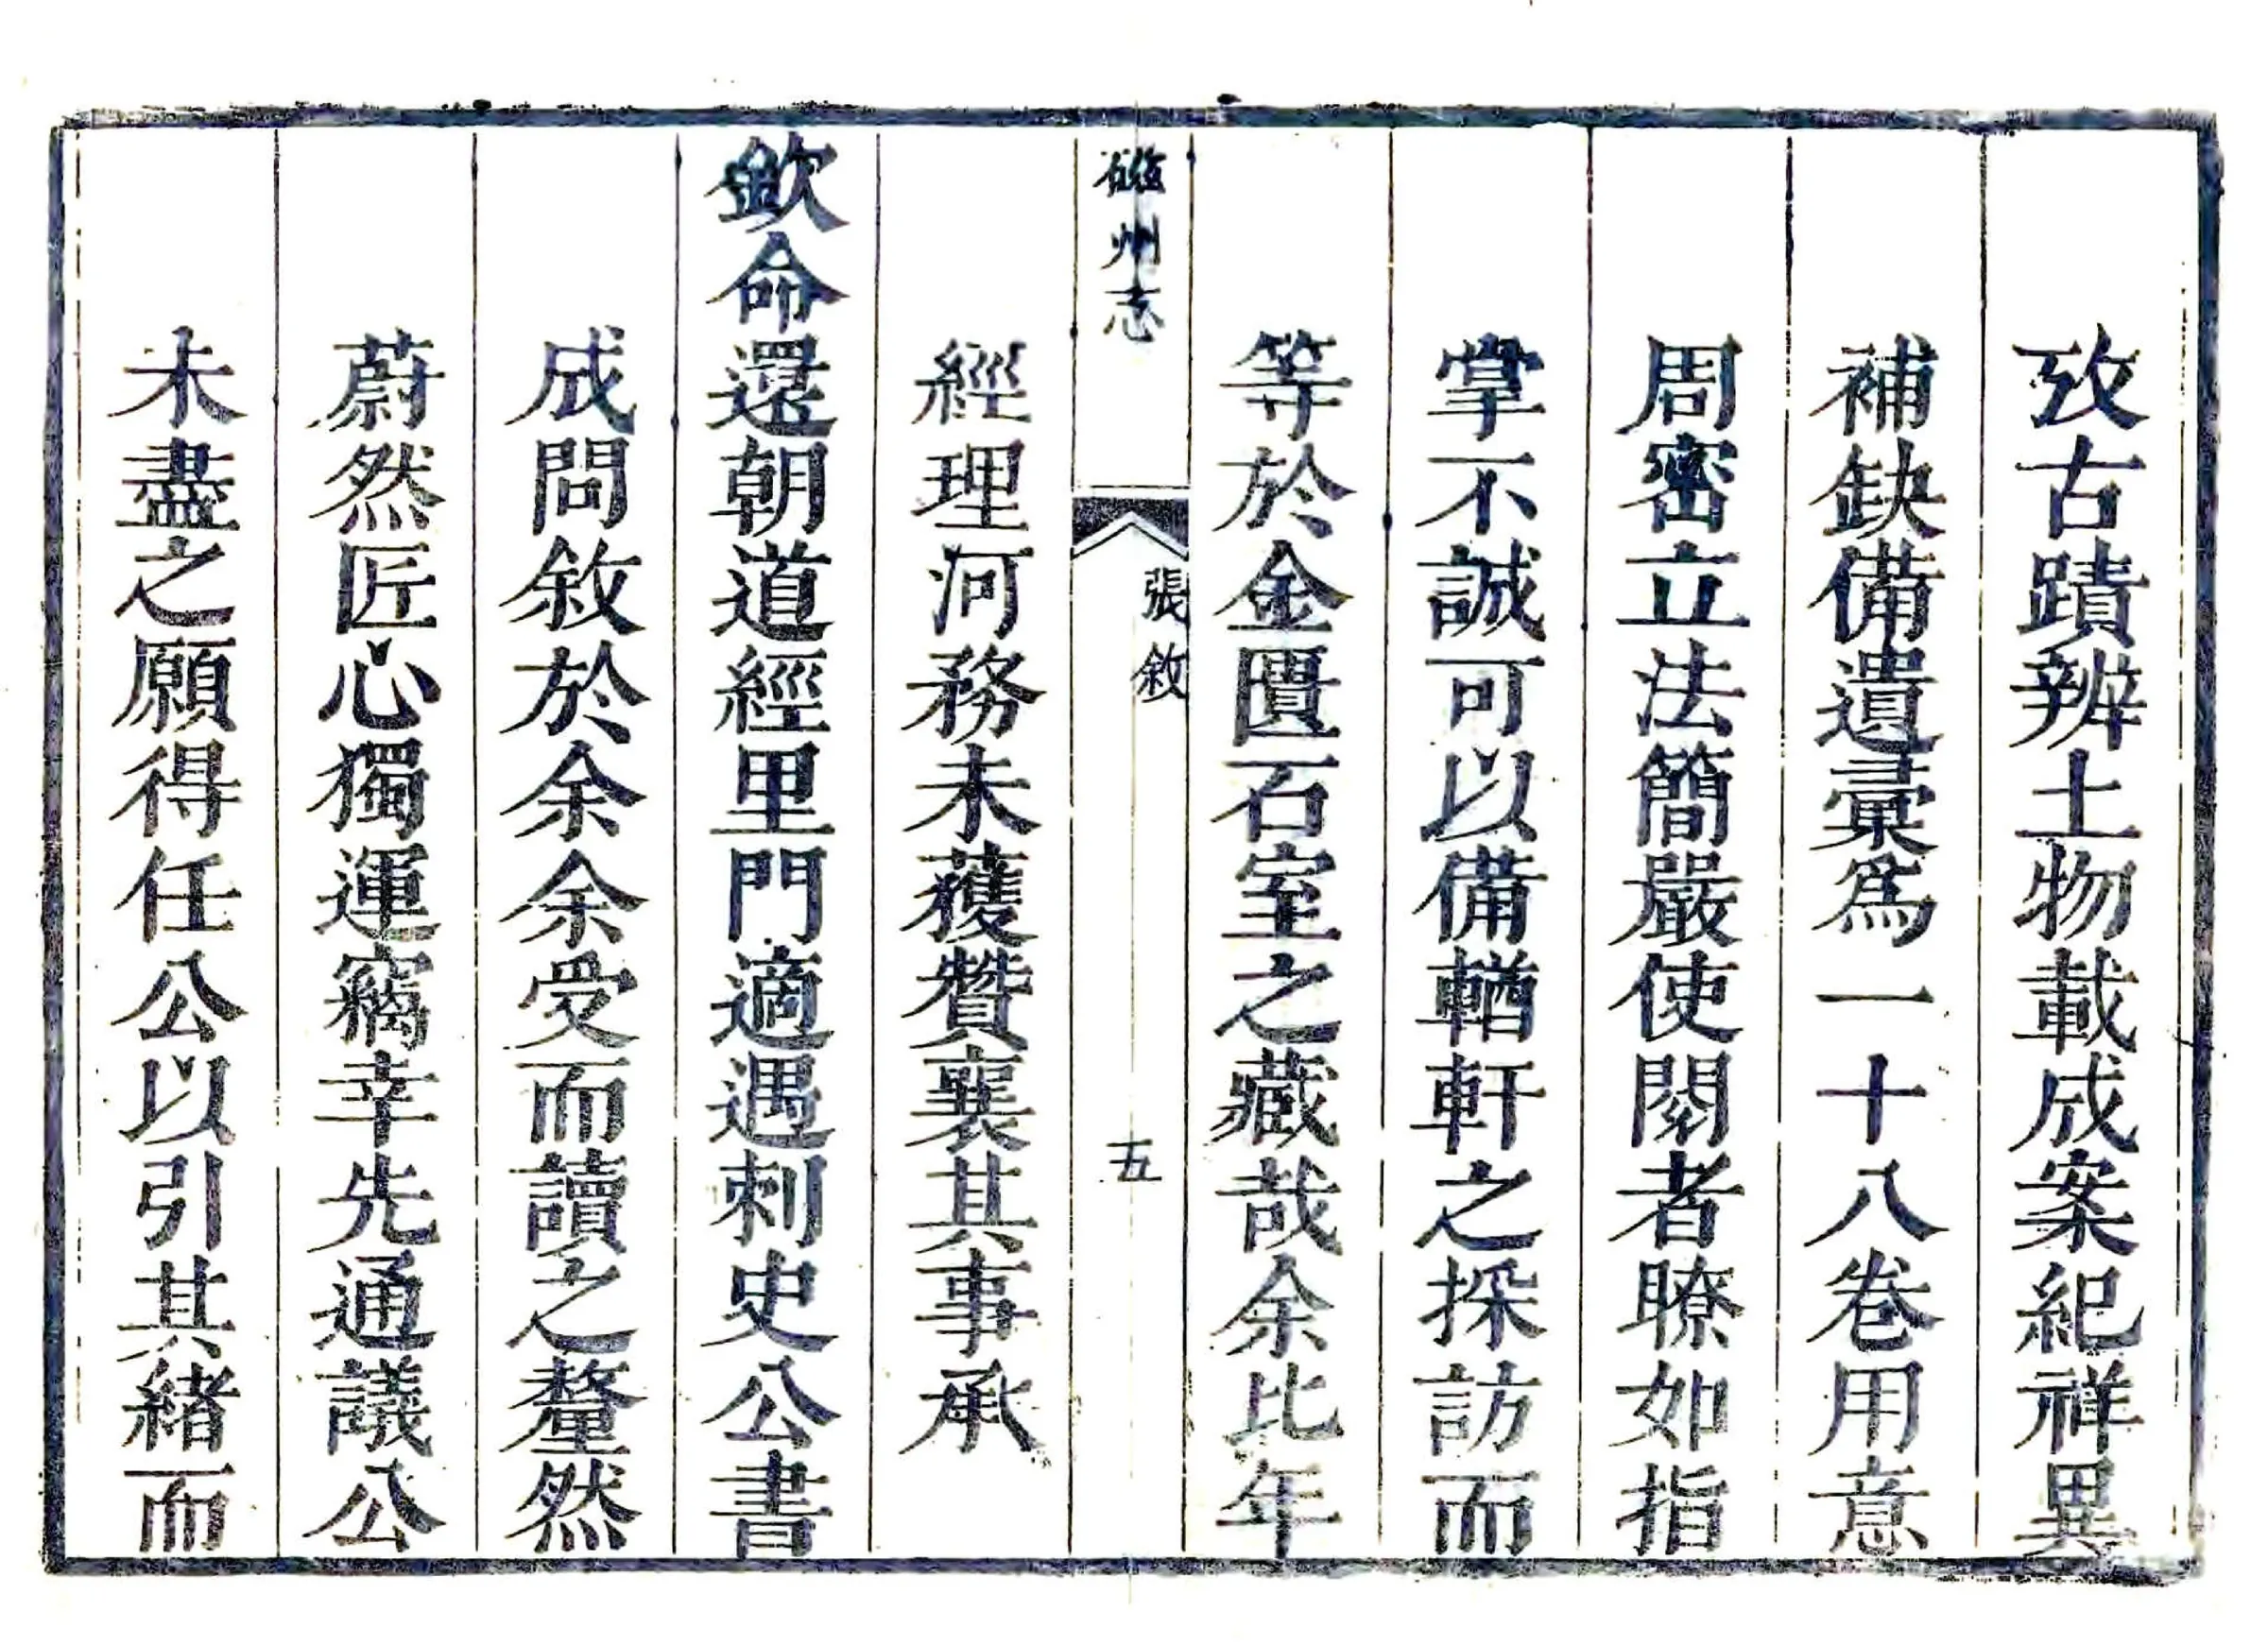 攷古蹟辨土物載成案紀祥異
補缺備遺彙爲一十八卷用意
周密立法簡嚴使閱者瞭如指
掌不誠可以備輶軒之採訪而
等於金匱石室之藏哉余比年
磁州志
張敘
五
經理河務未獲贊襄其事承
欽命還朝道經里門適遇刺史公書
成問敘於余余受而讀之犛然
蔚然匠心獨運竊幸先通議公
未盡之願得任公以引其緒而